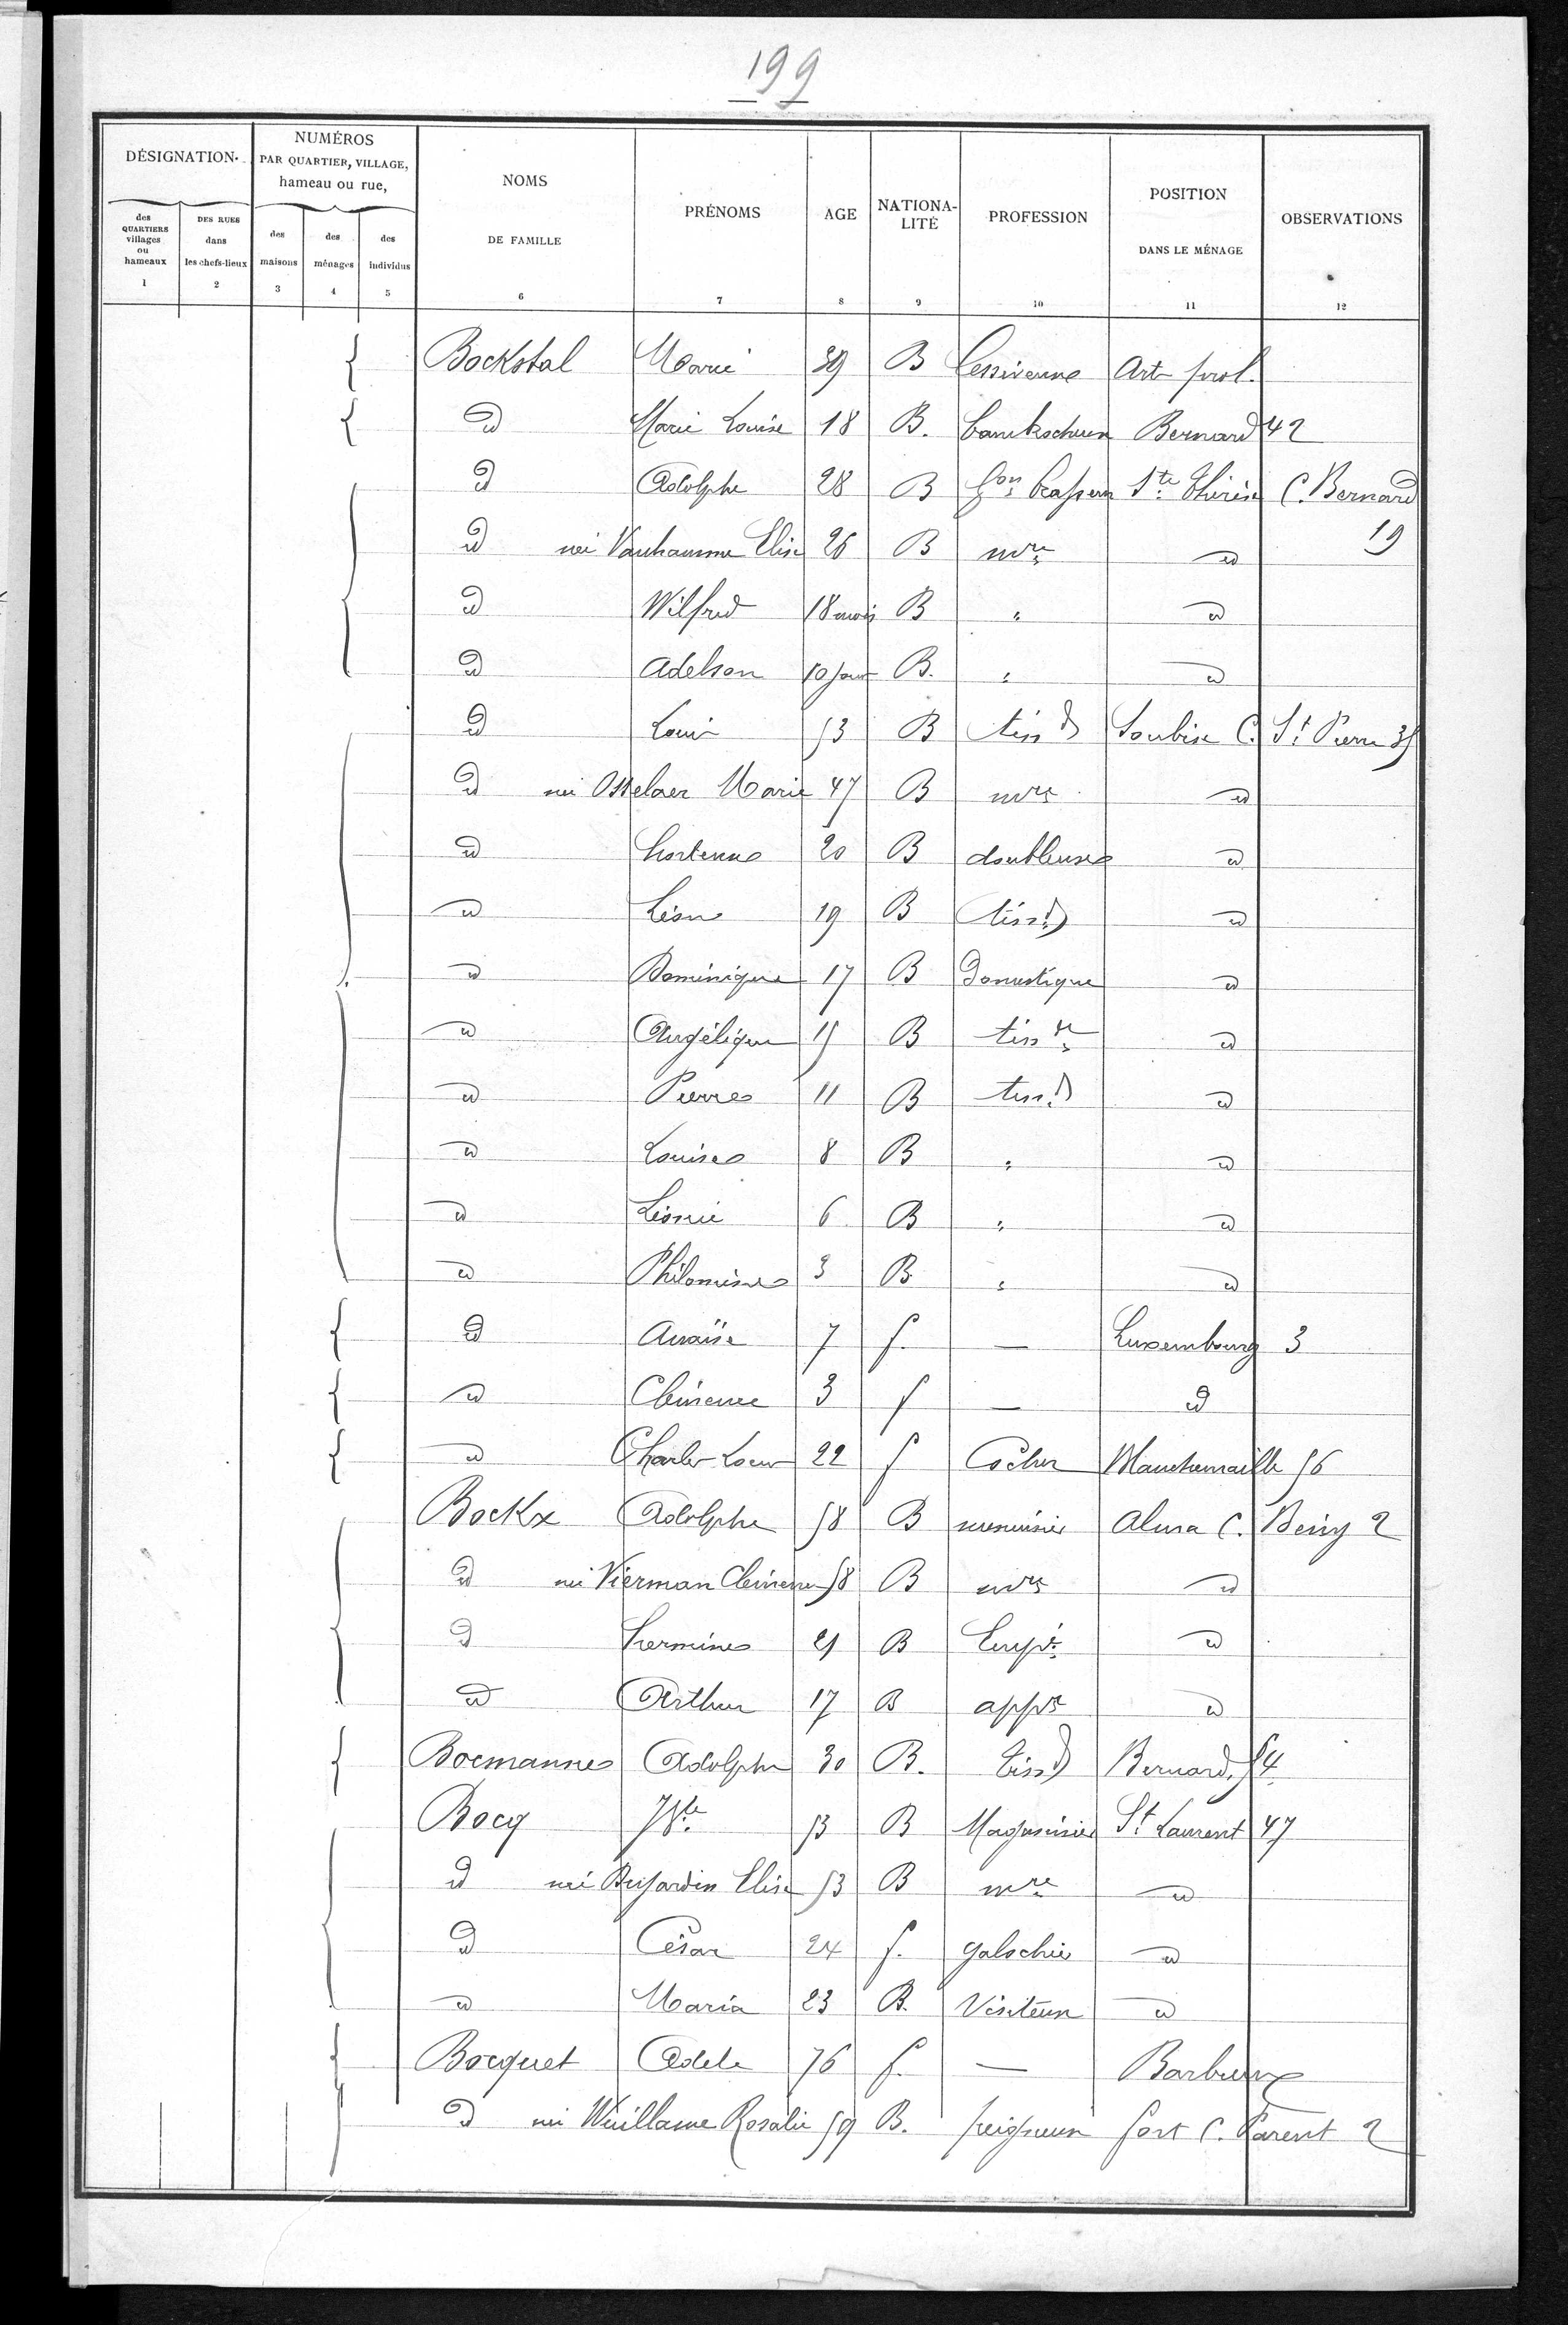 199
DÉSIGNATION
NUMÉROS PAR QUARTIER, VILLAGE, hameau ou rue,
NOMS DE FAMILLE
PRÉNOMS
AGE
NATIONALITÉ
PROFESSION
POSITION DANS LE MÉNAGE
OBSERVATIONS
des QUARTIERS villages ou hameaux
DES RUES dans les chefs-lieux
des maisons
des ménages
des individus
1 2 3 4 5 6 7 8 9 10 11 12
Bockstal Marie 39 B Lessiveuse Art prol.
d Marie Louise 18 B. Bernard 42
d Adolphe 28 B Gon brasseur Ste Thérèse C. Bernard
d née Vanhamme Elise 26 B mre d 19
d Wilfrid 18 mois B " d
d Adelson 10 jours B. " d
d Louis 53 B tissd Soubise C. St Pierre 35
d née Osselaer Marie 47 B mre d
d Hortense 20 B doubleuse d
d Léon 19 B tissd d
d Dominique 17 B Domestique d
d Angélique 15 B tissde d
d Pierre 11 B tissd d
d Louise 8 B " d
d Léonie 6 B " d
d Philomène 3 B " d
d Anaïse 7 f. — Luxembourg 3
d Clémence 3 f — d
d Charles Louis 22 f Cocher Blanchemaille 56
Bockx Adolphe 58 B menuisier Alma C. 2
d née Vierman Clémence 58 B mre d
d Hermine 21 B Empée d
d Arthur 17 B appr d
Bocmanne Adolphe 30 B. tissd Bernard, 54
Bocq Jh 53 B Magasinier St Laurent 47
d née Dujardin Elise 53 B mre d
d César 24 f. galochier d
d Maria 23 B. Visiteuse d
Bocquet Adele 76 f. — Barbieux
d née Wuillaume Rosalie 59 B. peigneuse fort C. Parent 2